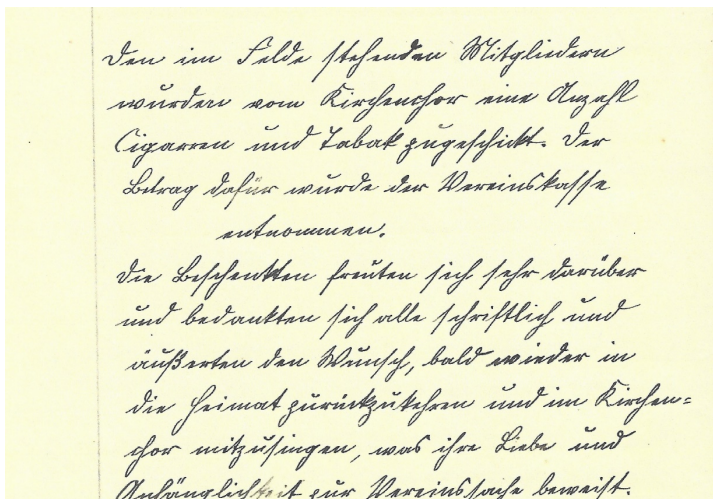 Den im Felde stehenden Mitgliedern
wurden vom Kirchenchor eine Anzahl
Cigarren und Tabak zugeschickt. Der
Betrag dafür wurde der Vereinskasse
entnommen.
Die Beschenkten freuten sich sehr darüber
und bedankten sich alle schriftlich und
äußerten den Wunsch, bald wieder in
die Heimat zurückzukehren und im Kirchen=
chor mitzusingen, was ihre Liebe und
Anhänglichkeit zur Vereinssache beweist.